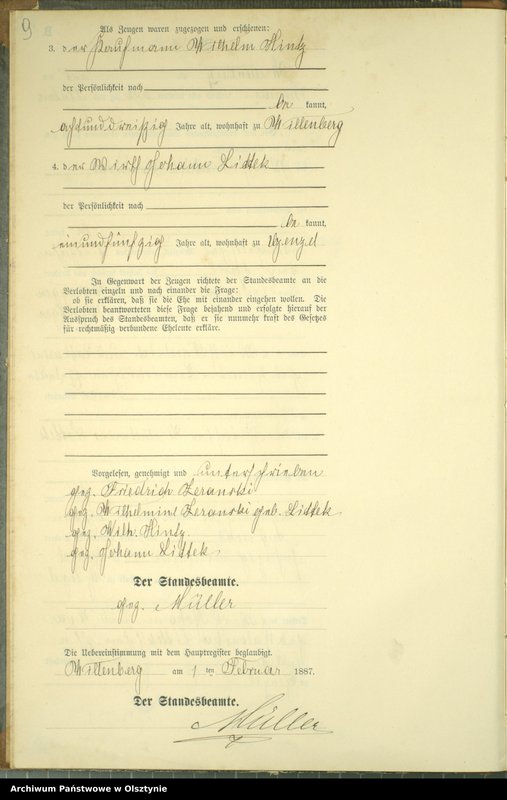 9
Als Zeugen waren zugezogen und erschienen:
3. der Kaufmann Wilhelm Hintz
der Persönlichkeit nach
be kannt,
achtunddreißig Jahre alt, wohnhaft zu Willenberg
4. der Wirth Johann Littek
der Persönlichkeit nach
be kannt,
einundfünfzig Jahre alt, wohnhaft zu
In Gegenwart der Zeugen richtete der Standesbeamte an die
Verlobten einzeln und nach einander die Frage:
ob sie erklären, daß sie die Ehe mit einander eingehen wollen. Die
Verlobten beantworteten diese Frage bejahend und erfolgte hierauf der
Ausspruch des Standesbeamten, daß er sie nunmehr kraft des Gesetzes
für rechtmäßig verbundene Eheleute erkläre.
Vorgelesen, genehmigt und unterschrieben
gez. Friedrich Zeranski
gez. Wilhelmine Zeranski geb. Littek
gez. Wilh. Hintz
gez. Johann Littek
Der Standesbeamte.
gez. Müller
Die Uebereinstimmung mit dem Hauptregister beglaubigt.
Willenberg am 1 ten Februar 1887.
Der Standesbeamte.
Müller
Archiwum Państwowe w Olsztynie